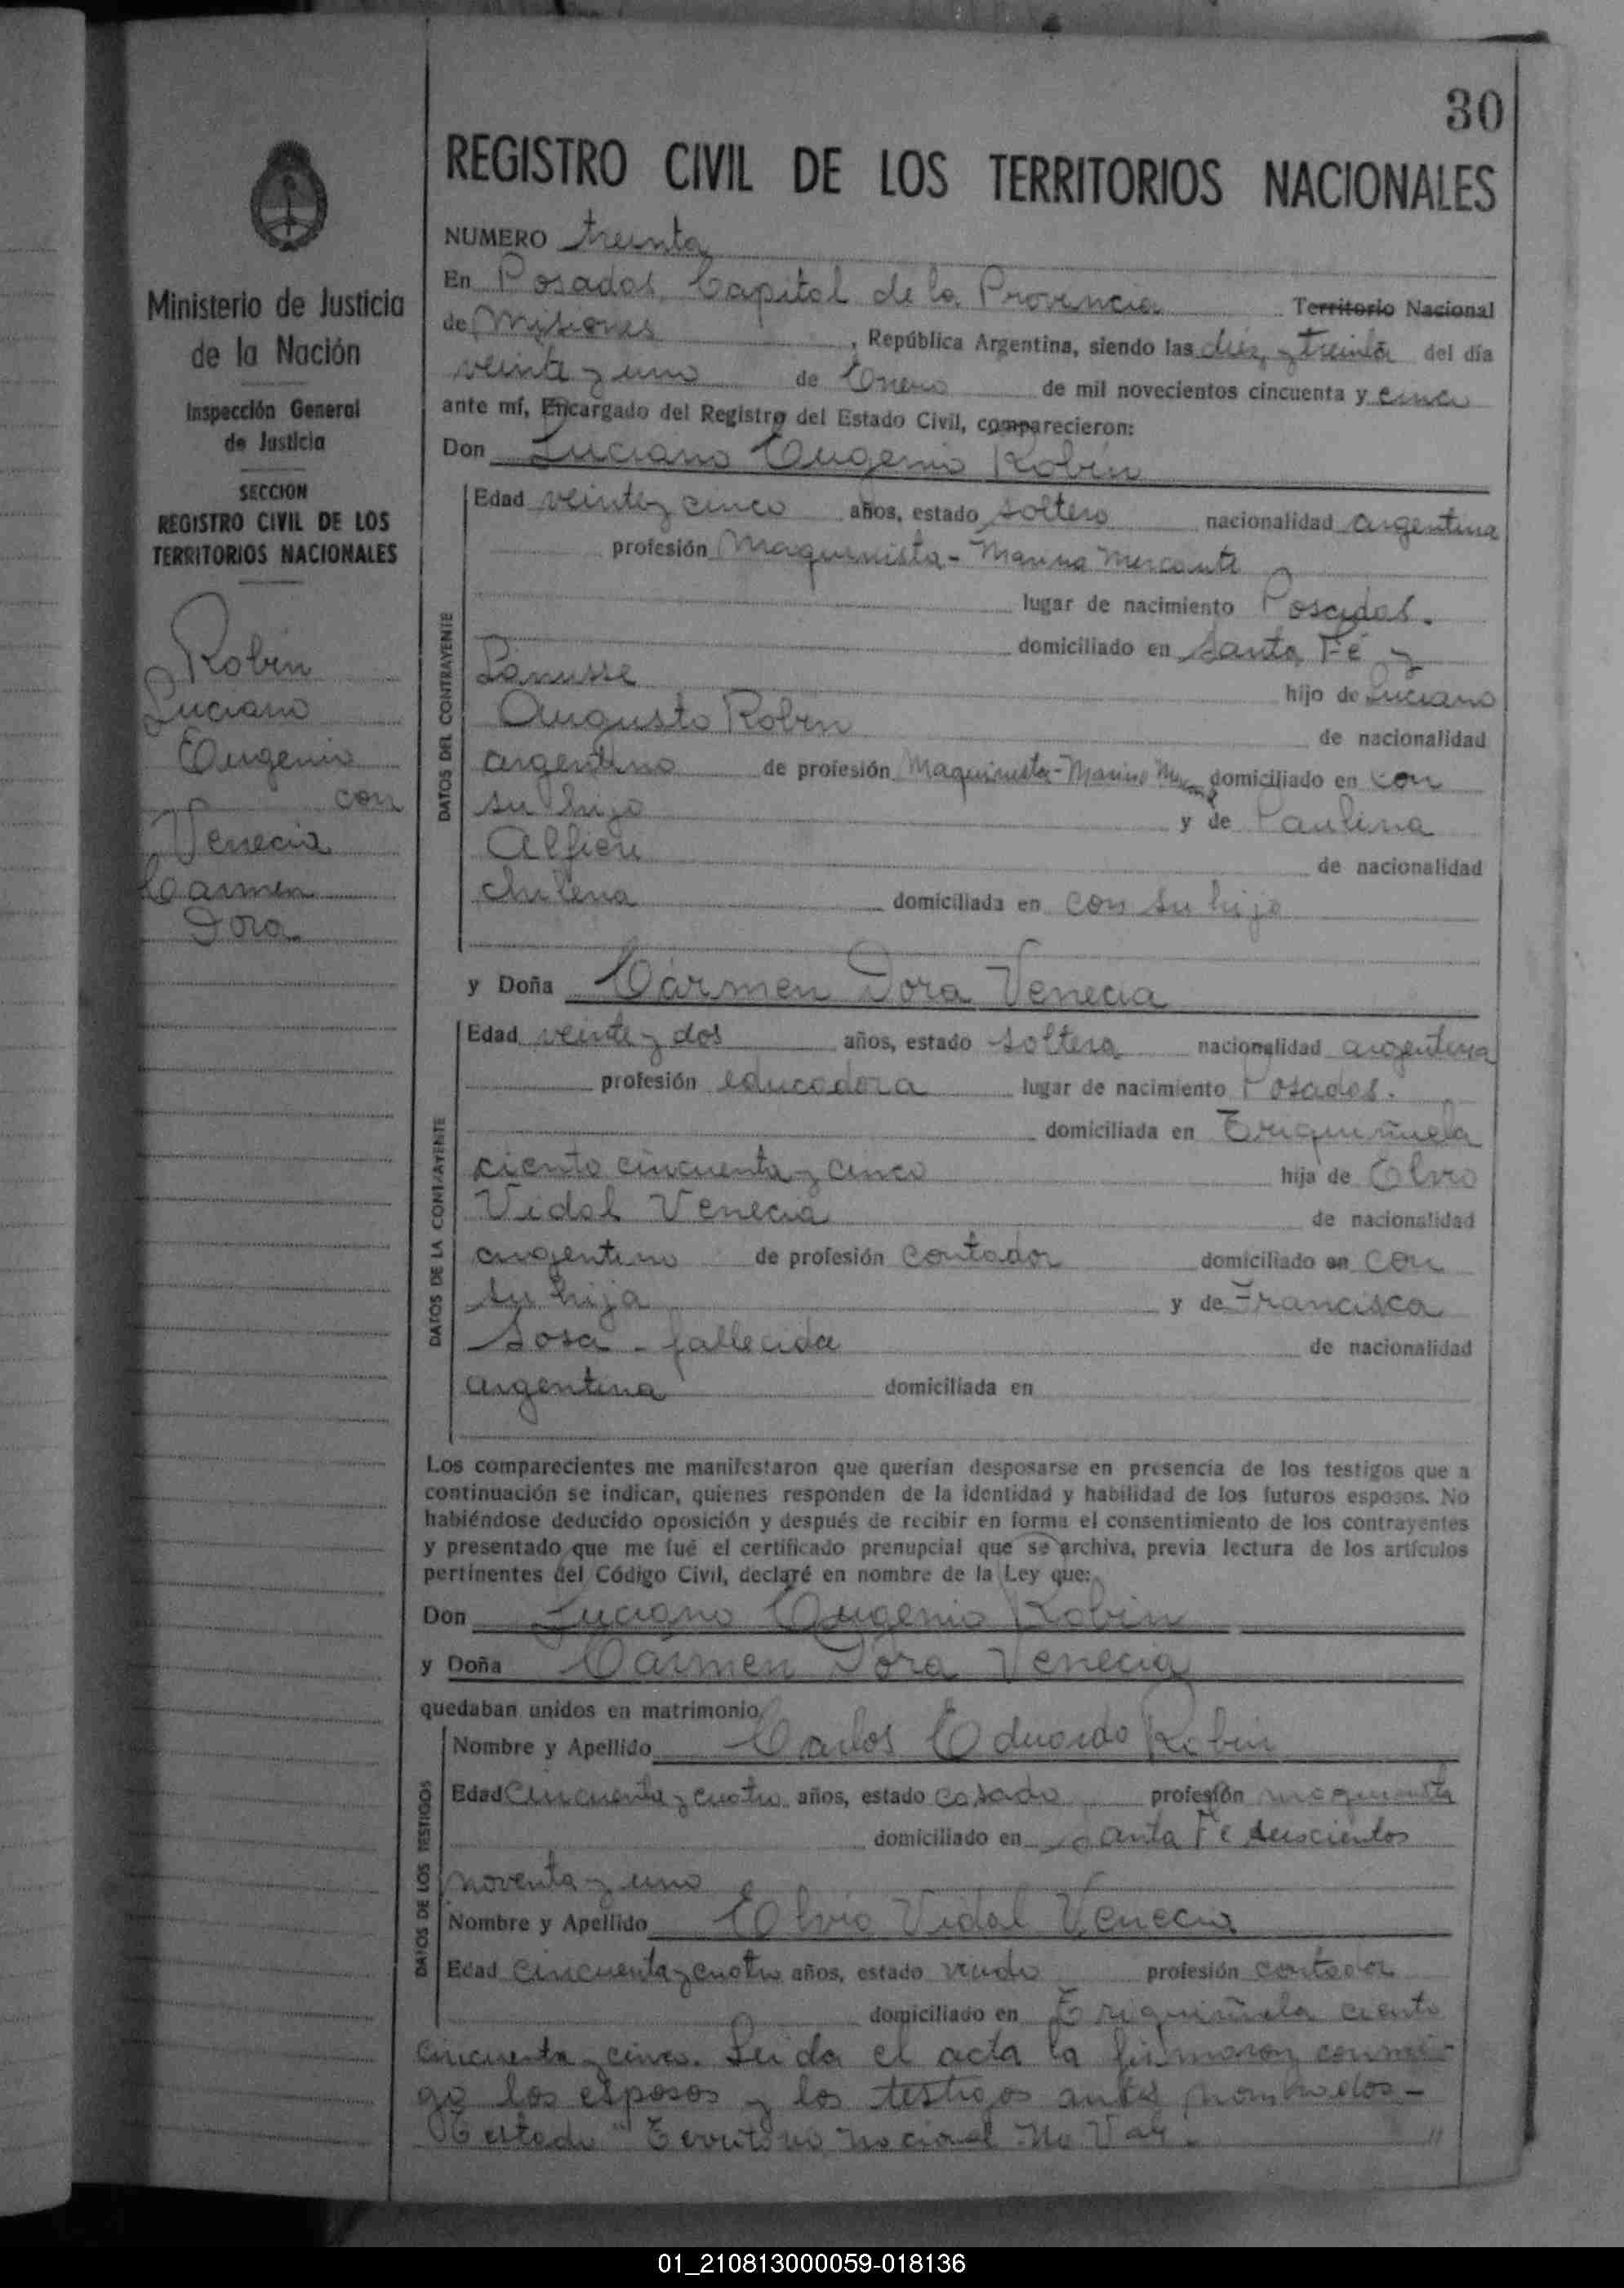 30
REGISTRO CIVIL DE LOS TERRITORIOS NACIONALES
Ministerio de Justicia
de la Nación
Inspección General
de Justicia
SECCION
REGISTRO CIVIL DE LOS
TERRITORIOS NACIONALES
Robin
Luciano
Eugenio
con
Venecia
Carmen
Dora
NUMERO treinta
En Posadas, Capital de la Provincia Territorio Nacional
de Misiones, República Argentina, siendo las diez y treinta del día
veinte y uno de Enero de mil novecientos cincuenta y cinco
ante mí, Encargado del Registro del Estado Civil, comparecieron:
Don Luciano Eugenio Robin
DATOS DEL CONTRAYENTE
Edad veinte y cinco años, estado soltero nacionalidad argentina
profesión Maquinista - Marina Mercante
lugar de nacimiento Posadas.
domiciliado en Santa Fé y
Lanusse hijo de Luciano
Augusto Robin de nacionalidad
argentino de profesión Maquinista - Marina domiciliado en con
su hijo y de Paulina
Alfieri de nacionalidad
chilena domiciliada en con su hijo
y Doña Carmen Dora Venecia
DATOS DE LA CONTRAYENTE
Edad veinte y dos años, estado soltera nacionalidad argentina
profesión educadora lugar de nacimiento Posadas.
domiciliada en Eriquiñuela
ciento cincuenta y cinco hija de Elvio
Vidal Venecia de nacionalidad
argentino de profesión contador domiciliado en con
su hija y de Francisca
Sosa - fallecida de nacionalidad
argentina domiciliada en
Los comparecientes me manifestaron que querían desposarse en presencia de los testigos que a
continuación se indican, quienes responden de la identidad y habilidad de los futuros esposos. No
habiéndose deducido oposición y después de recibir en forma el consentimiento de los contrayentes
y presentado que me fué el certificado prenupcial que se archiva, previa lectura de los artículos
pertinentes del Código Civil, declaré en nombre de la Ley que:
Don Luciano Eugenio Robin
y Doña Carmen Dora Venecia
quedaban unidos en matrimonio
DATOS DE LOS TESTIGOS
Nombre y Apellido Carlos Eduardo Robin
Edad cincuenta y cuatro años, estado casado profesión maquinista
domiciliado en Santa Fé seiscientos
noventa y uno
Nombre y Apellido Elvio Vidal Venecia
Edad cincuenta y cuatro años, estado viudo profesión contador
domiciliado en Eriquiñuela ciento
cincuenta y cinco. Leida el acta la firmaron conmi-
go los esposos y los testigos antes nombrados -
Testado "Territorio Nacional" No Vale. "
01_210813000059-018136